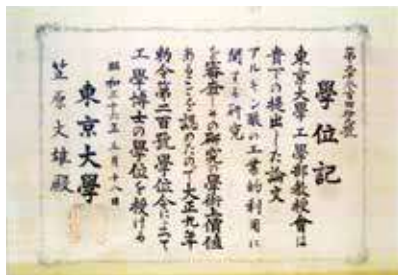 學位記
東京大學工學部教授會は
貴下の提出した論文
アルギン酸の工業的利用に
関する研究
を審査しその研究の學術上價値
あることを認めたので大正九年
勅令第二百號學位令によって
工學博士の學位を授ける
昭和三十六年三月十八日
東京大學
笠原文雄殿